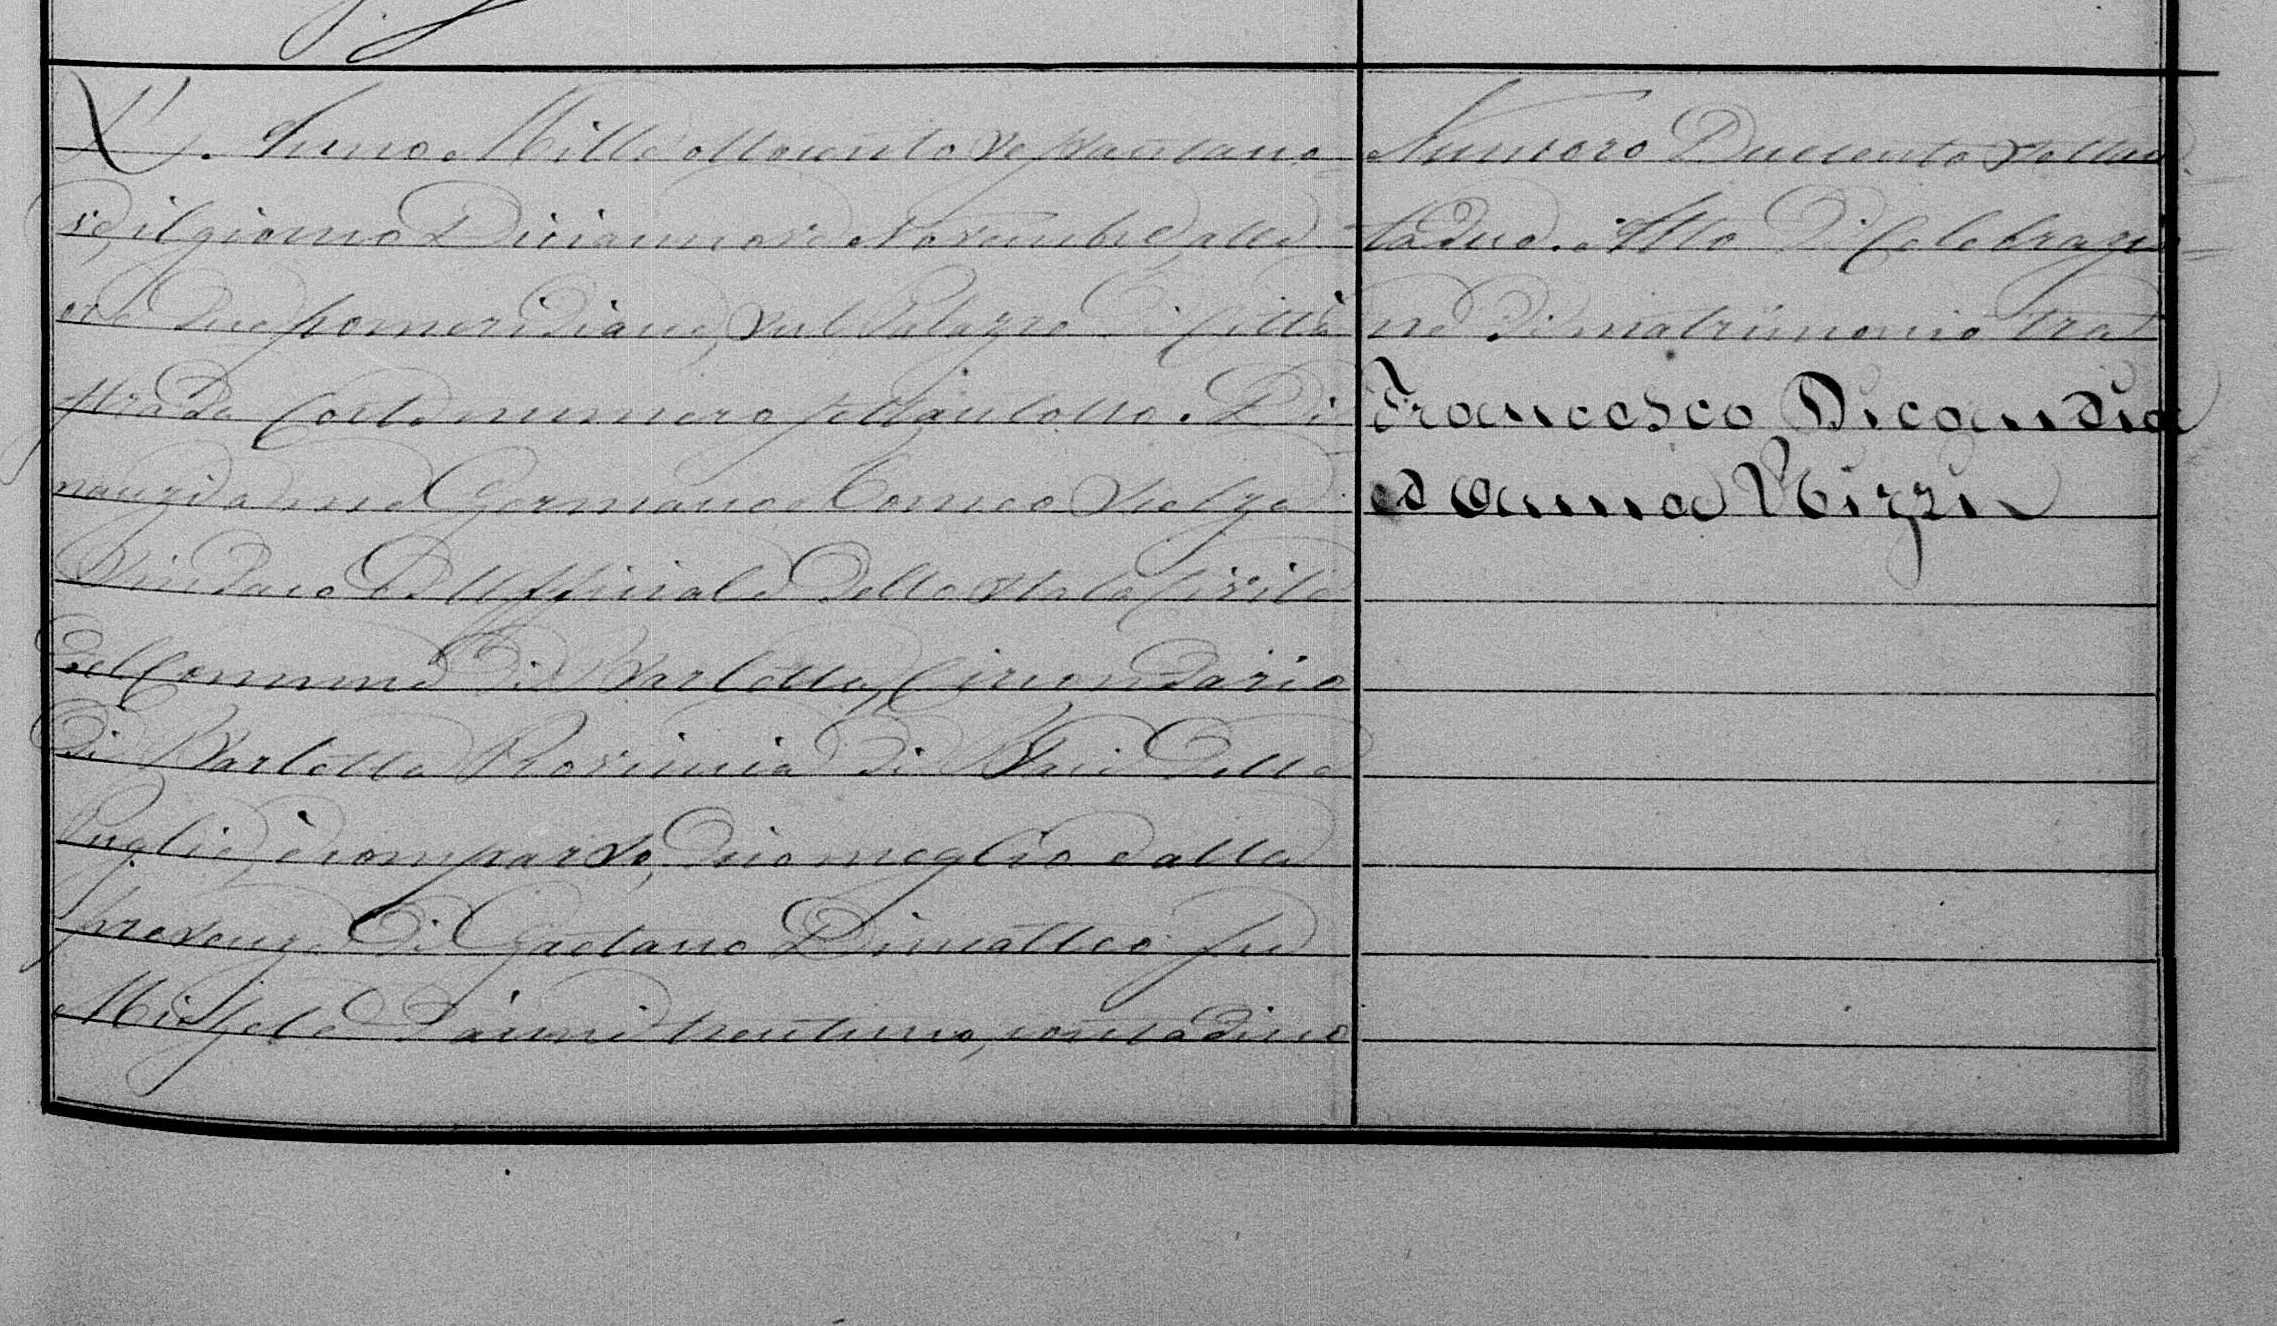 L'Anno Mille ottocento sessantano
ve, il giorno Diciannove Novembre, alle
ore due pomeridiane, sul Palazzo di Città
strada Corte numero settantotto. Di
nanzi a me Germano Scelza
Sindaco ed Uffiziale dello Stato Civile
del Comune di Barletta, Circondario
di Barletta Provincia di Bari delle
Puglie, è comparso, dico meglio alla
presenza di Gaetano Dimatteo fu
Michele d'anni trentuno, contadino
Numero Duecento settan
tadue. Atto di Celebrazio
ne di matrimonio tra
Francesco Dicandia
ed Anna Rizzi